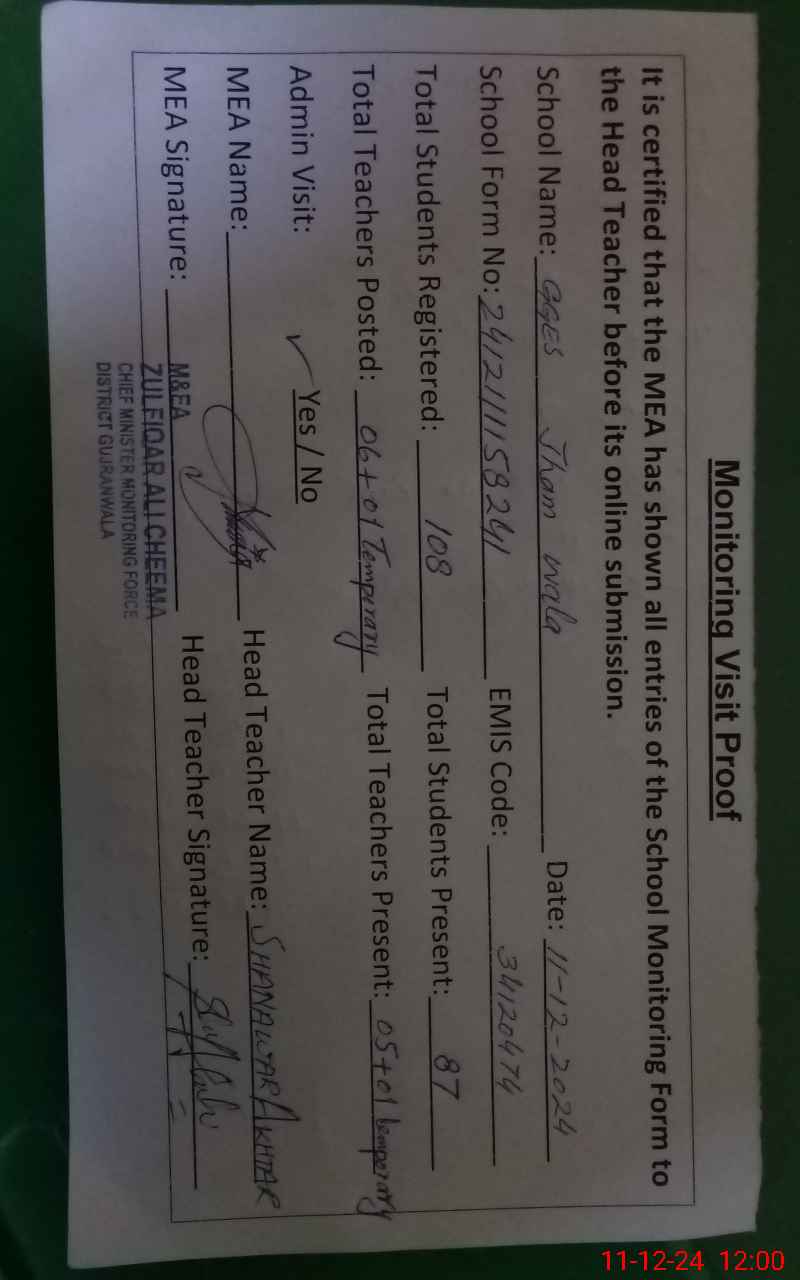 Monitoring Visit Proof
It is certified that the MEA has shown all entries of the School Monitoring Form to
the Head Teacher before its online submission.
School Name: GGES Jham wala Date: 11-12-2024
School Form No: 241211158241 EMIS Code: 34120474
Total Students Registered: 108 Total Students Present: 87
Total Teachers Posted: 06+01 Temporary Total Teachers Present: 05+01 temporary
Admin Visit: ✓ Yes / No
MEA Name: Head Teacher Name: SHANAWAR AKHTAR
MEA Signature: Head Teacher Signature:
M&EA
ZULFIQAR ALI CHEEMA
CHIEF MINISTER MONITORING FORCE
DISTRICT GUJRANWALA
11-12-24 12:00